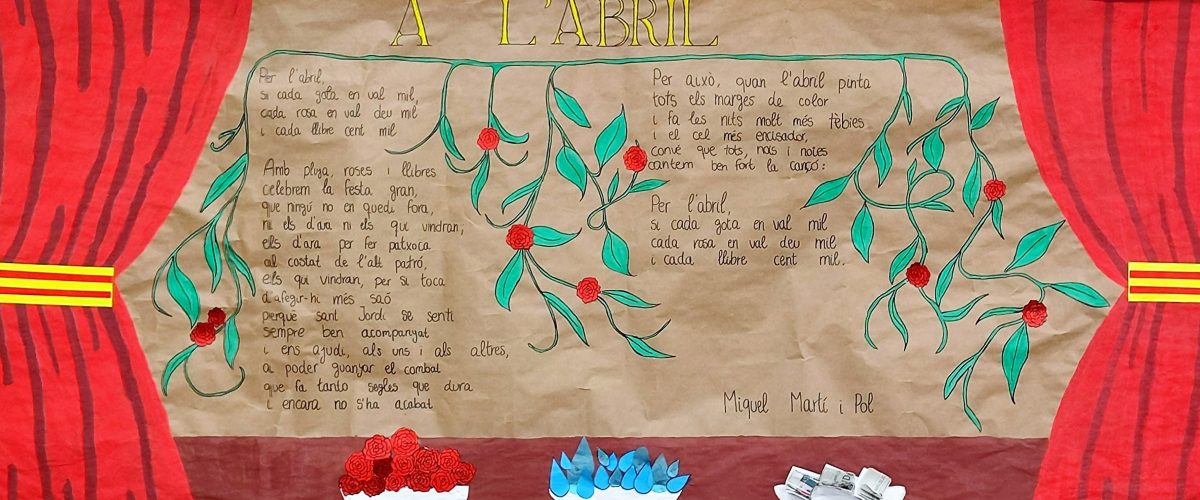 A L'ABRIL
Per l'abril,
si cada gota en val mil,
cada rosa en val deu mil
i cada llibre cent mil
Amb pluja, roses i llibres
celebrem la festa gran,
que ningú no en quedi fora,
ni els d'ara ni els que vindran;
els d'ara per fer patxoca
al costat de l'alt patró,
els qui vindran, per si toca
d'afegir-hi més saó
perquè sant Jordi se senti
sempre ben acompanyat
i ens ajudi, als uns i als altres,
a poder guanyar el combat
que fa tants segles que dura
i encara no s'ha acabat
Per això, quan l'abril pinta
tots els marges de color
i fa les nits molt més tèbies
i el cel més encisador,
convé que tots, nois i noies
cantem ben fort la cançó:
Per l'abril,
si cada gota en val mil
cada rosa en val deu mil
i cada llibre cent mil.
Miquel Martí i Pol